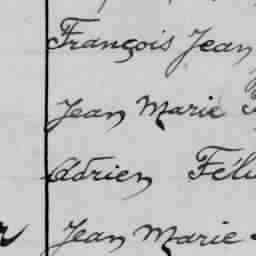 François Jean
Jean Marie
Adrien
Jean Marie